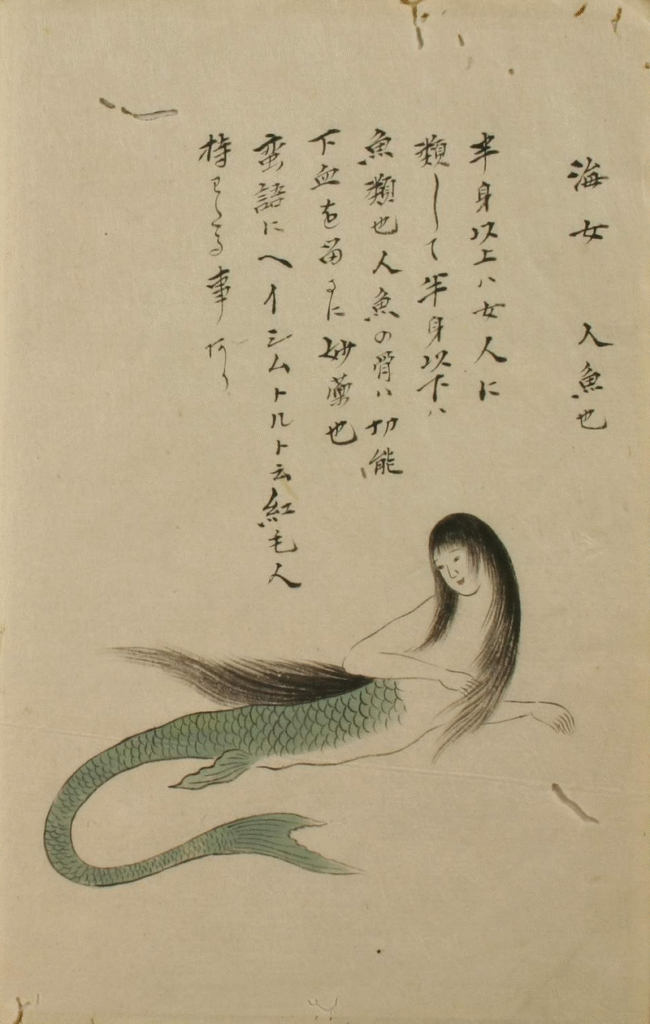 海女 人魚也
半身以上ハ女人に
類して半身以下ハ
魚類也人魚の骨ハ功能
下血を留るに妙薬也
蛮語にヘイシムトルト云紅毛人
持わたる事